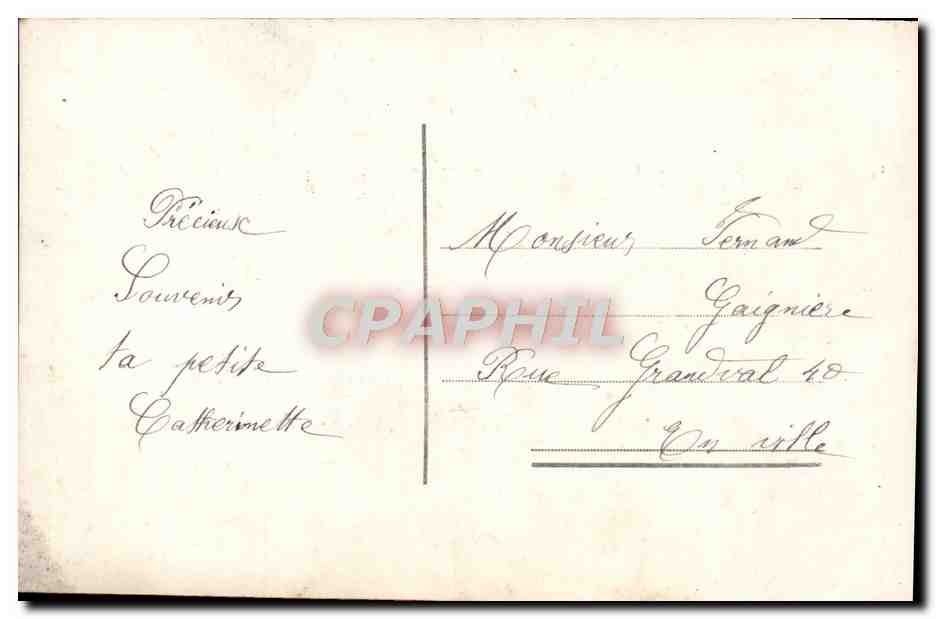 Précieux
Souvenir
ta petite
Catherinette
Monsieur Fernand
Gaigniere
Rue Grandval 40
En ville
CPAPHIL